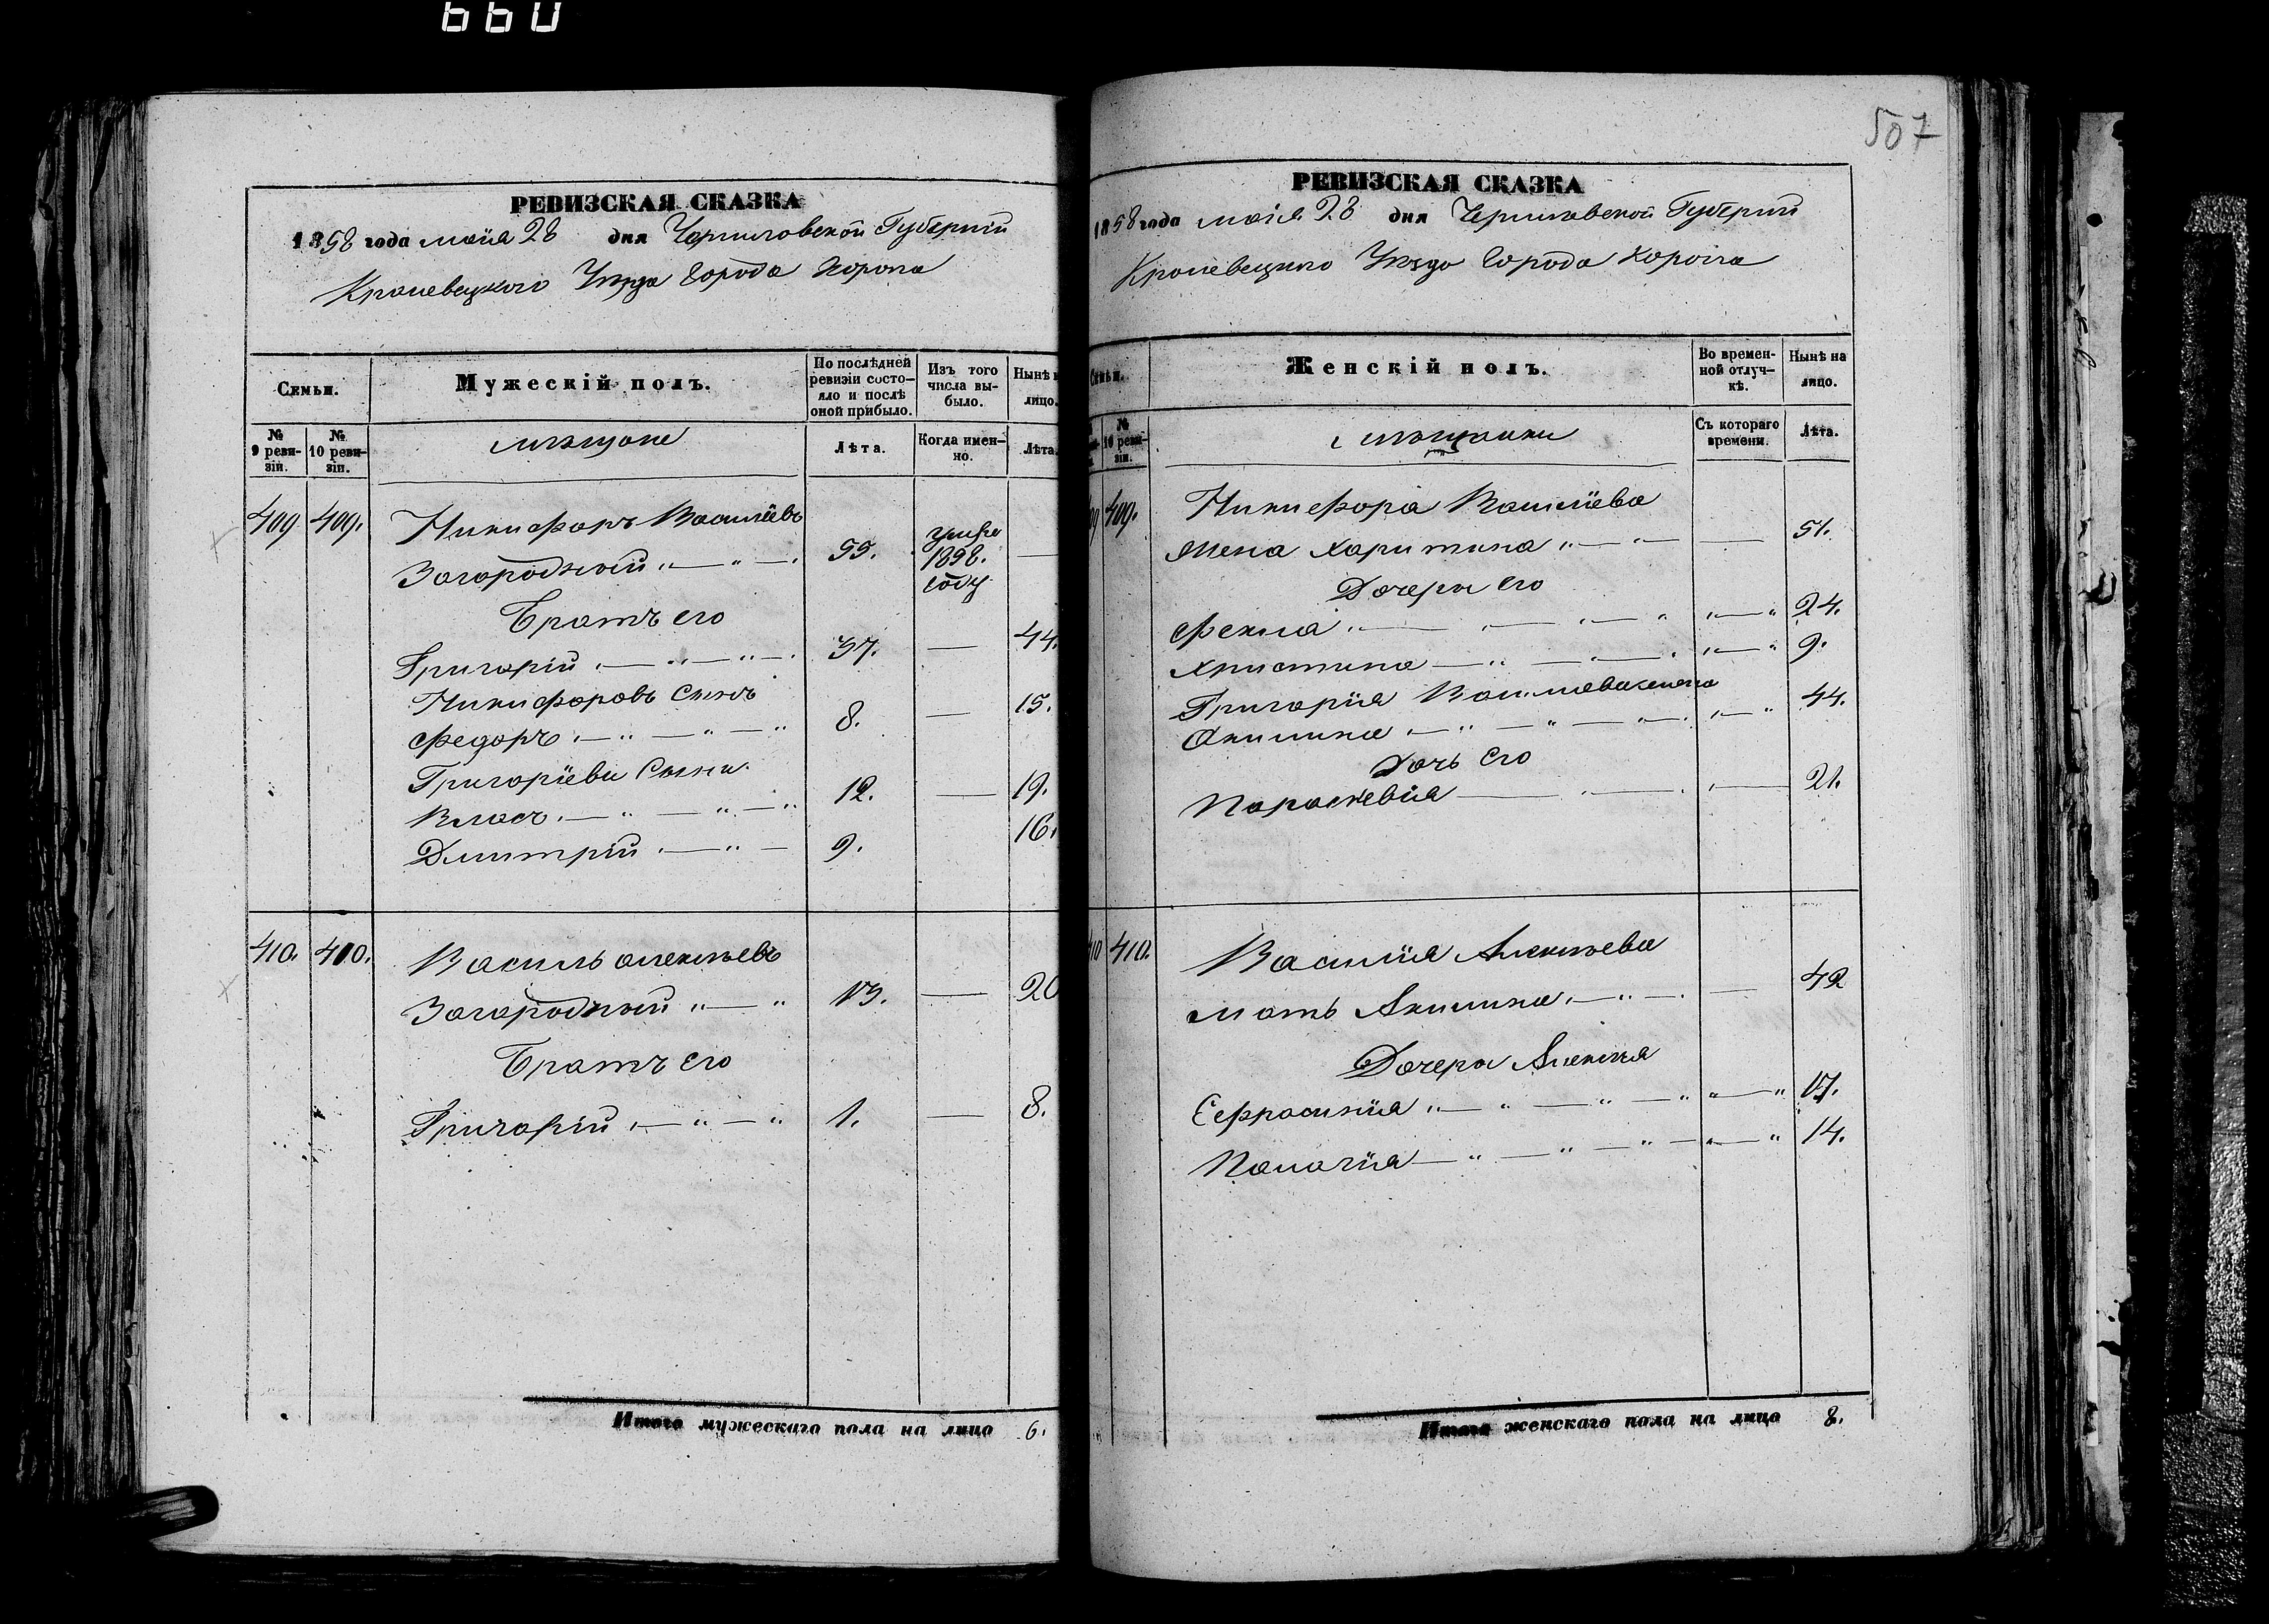 660
РЕВИЗСКАЯ СКАЗКА
1858 года маія 28 дня Черниговской Губерніи
Кролевецкого Уѣзда Города Коропа
Семьи.
Мужескій полъ.
По послѣдней ревизіи состояло и послѣ оной прибыло.
Изъ того числа выбыло.
Нынѣ н
лицо.
№ 9 ревизіи.
№ 10 ревизіи.
мѣщане
Лѣта.
Когда именно.
Лѣта.
409. 409. Никифоръ Василіевъ
Загородній 55. умре 1858. году —
Братъ его
Григорій 37. — 44.
Никифоровъ Сынъ
Федоръ 8. — 15.
Григоріеви Сыны
Власъ 12. — 19.
Дмитрій 9. 16.
410. 410. Василь алексѣевъ
Загородній 13. — 20
Братъ его
Григорій 1. — 8.
Итого мужескаго пола на лицо 6.
507
РЕВИЗСКАЯ СКАЗКА
1858 года маія 28 дня Черниговской Губерніи
Кролевецкого Уѣзда Города Коропа
Семьи.
Женскій полъ.
Во временной отлучкѣ.
Нынѣ на лицо.
№ 10 ревизіи.
мѣщанки
Съ котораго времени.
Лѣта.
409. Никифора Василіева
жена Харитина — 51.
Дочери его
Фекла 24.
Христина 9.
Григорія Василіева жена
Акилина 44.
Дочь его
Параскевія 21.
410 410. Василія Алексѣева
мать Акилина — 42
Дочери Алексѣя
Еефросинія 17.
Палагія 14.
Итого женскаго пола на лицо 8.